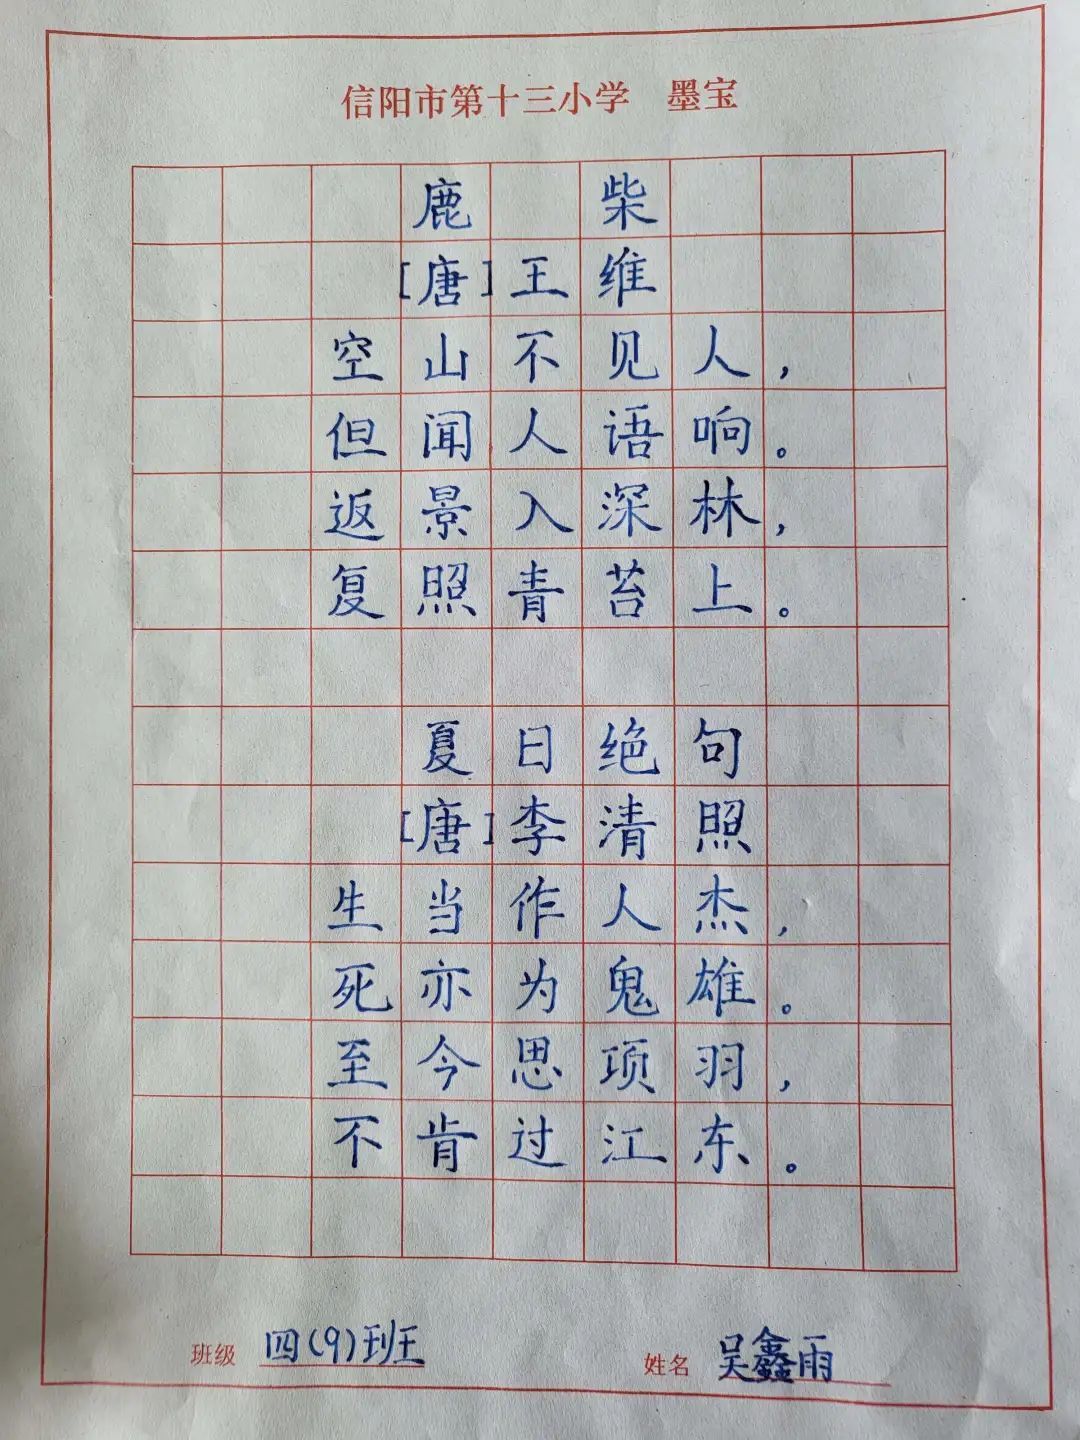 信阳市第十三小学 墨宝
鹿 柴
[唐]王维
空山不见人，
但闻人语响。
返景入深林，
复照青苔上。
夏日绝句
[唐]李清照
生当作人杰，
死亦为鬼雄。
至今思项羽，
不肯过江东。
班级 四(9)班 姓名 吴鑫雨